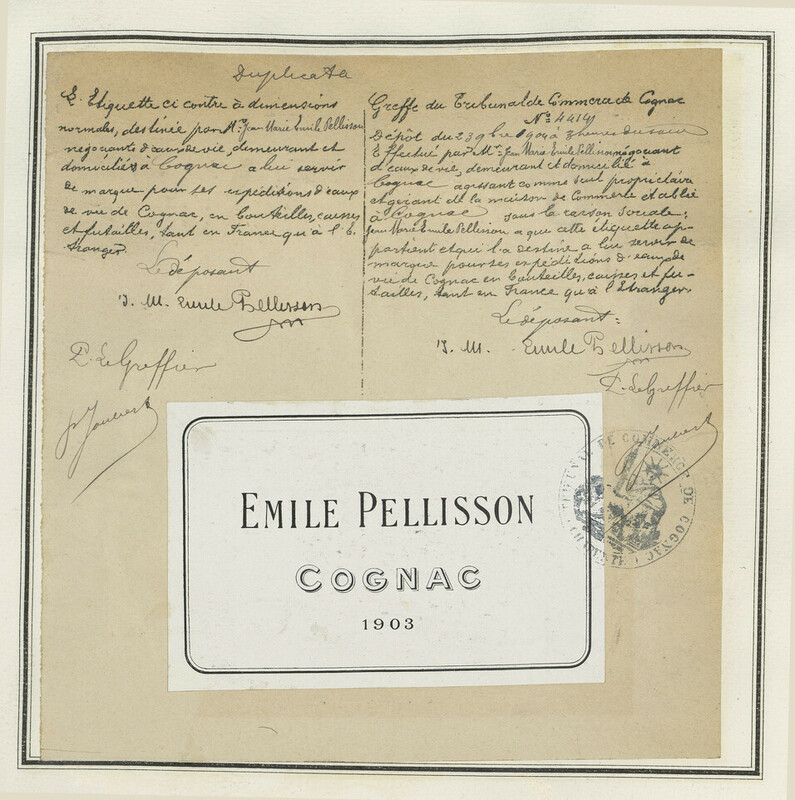 Duplicata
L'Etiquette ci contre à dimensions
normales, destinée par Mr. Jean Marie Emile Pellisson
négociants d'eaux de vie, demeurant et
domiciliés à Cognac a lui servir
de marque pour ses expéditions d'eaux
de vie de Cognac, en bouteilles, caisses
et futailles, tant en France qu'à l'E-
tranger.
Le déposant
J. M. Emile Pellisson
P. Le Greffier
Joubert
Greffe du Tribunal de Commerce de Cognac
No= 4414
Dépôt du 23 9bre 1904 à 3 heures du soir
Effectué par Mr. Jean Marie Emile Pellisson négociant
d'eaux de vie, demeurant et domicilié à
Cognac agissant comme seul propriétaire
et gérant de la maison de Commerce établie
à Cognac sous la raison sociale:
Jean Marie Emile Pellisson a que cette étiquette ap-
partient et qui l'a destine a lui servir de
marque pour ses expéditions d'eaux de
vie de Cognac en bouteilles, caisses et fu-
tailles, tant en France qu'à l'Etranger.
Le déposant:
J. M. Emile Pellisson
P. Le Greffier
Joubert
EMILE PELLISSON
COGNAC
1903
TRIBUNAL DE COMMERCE DE COGNAC